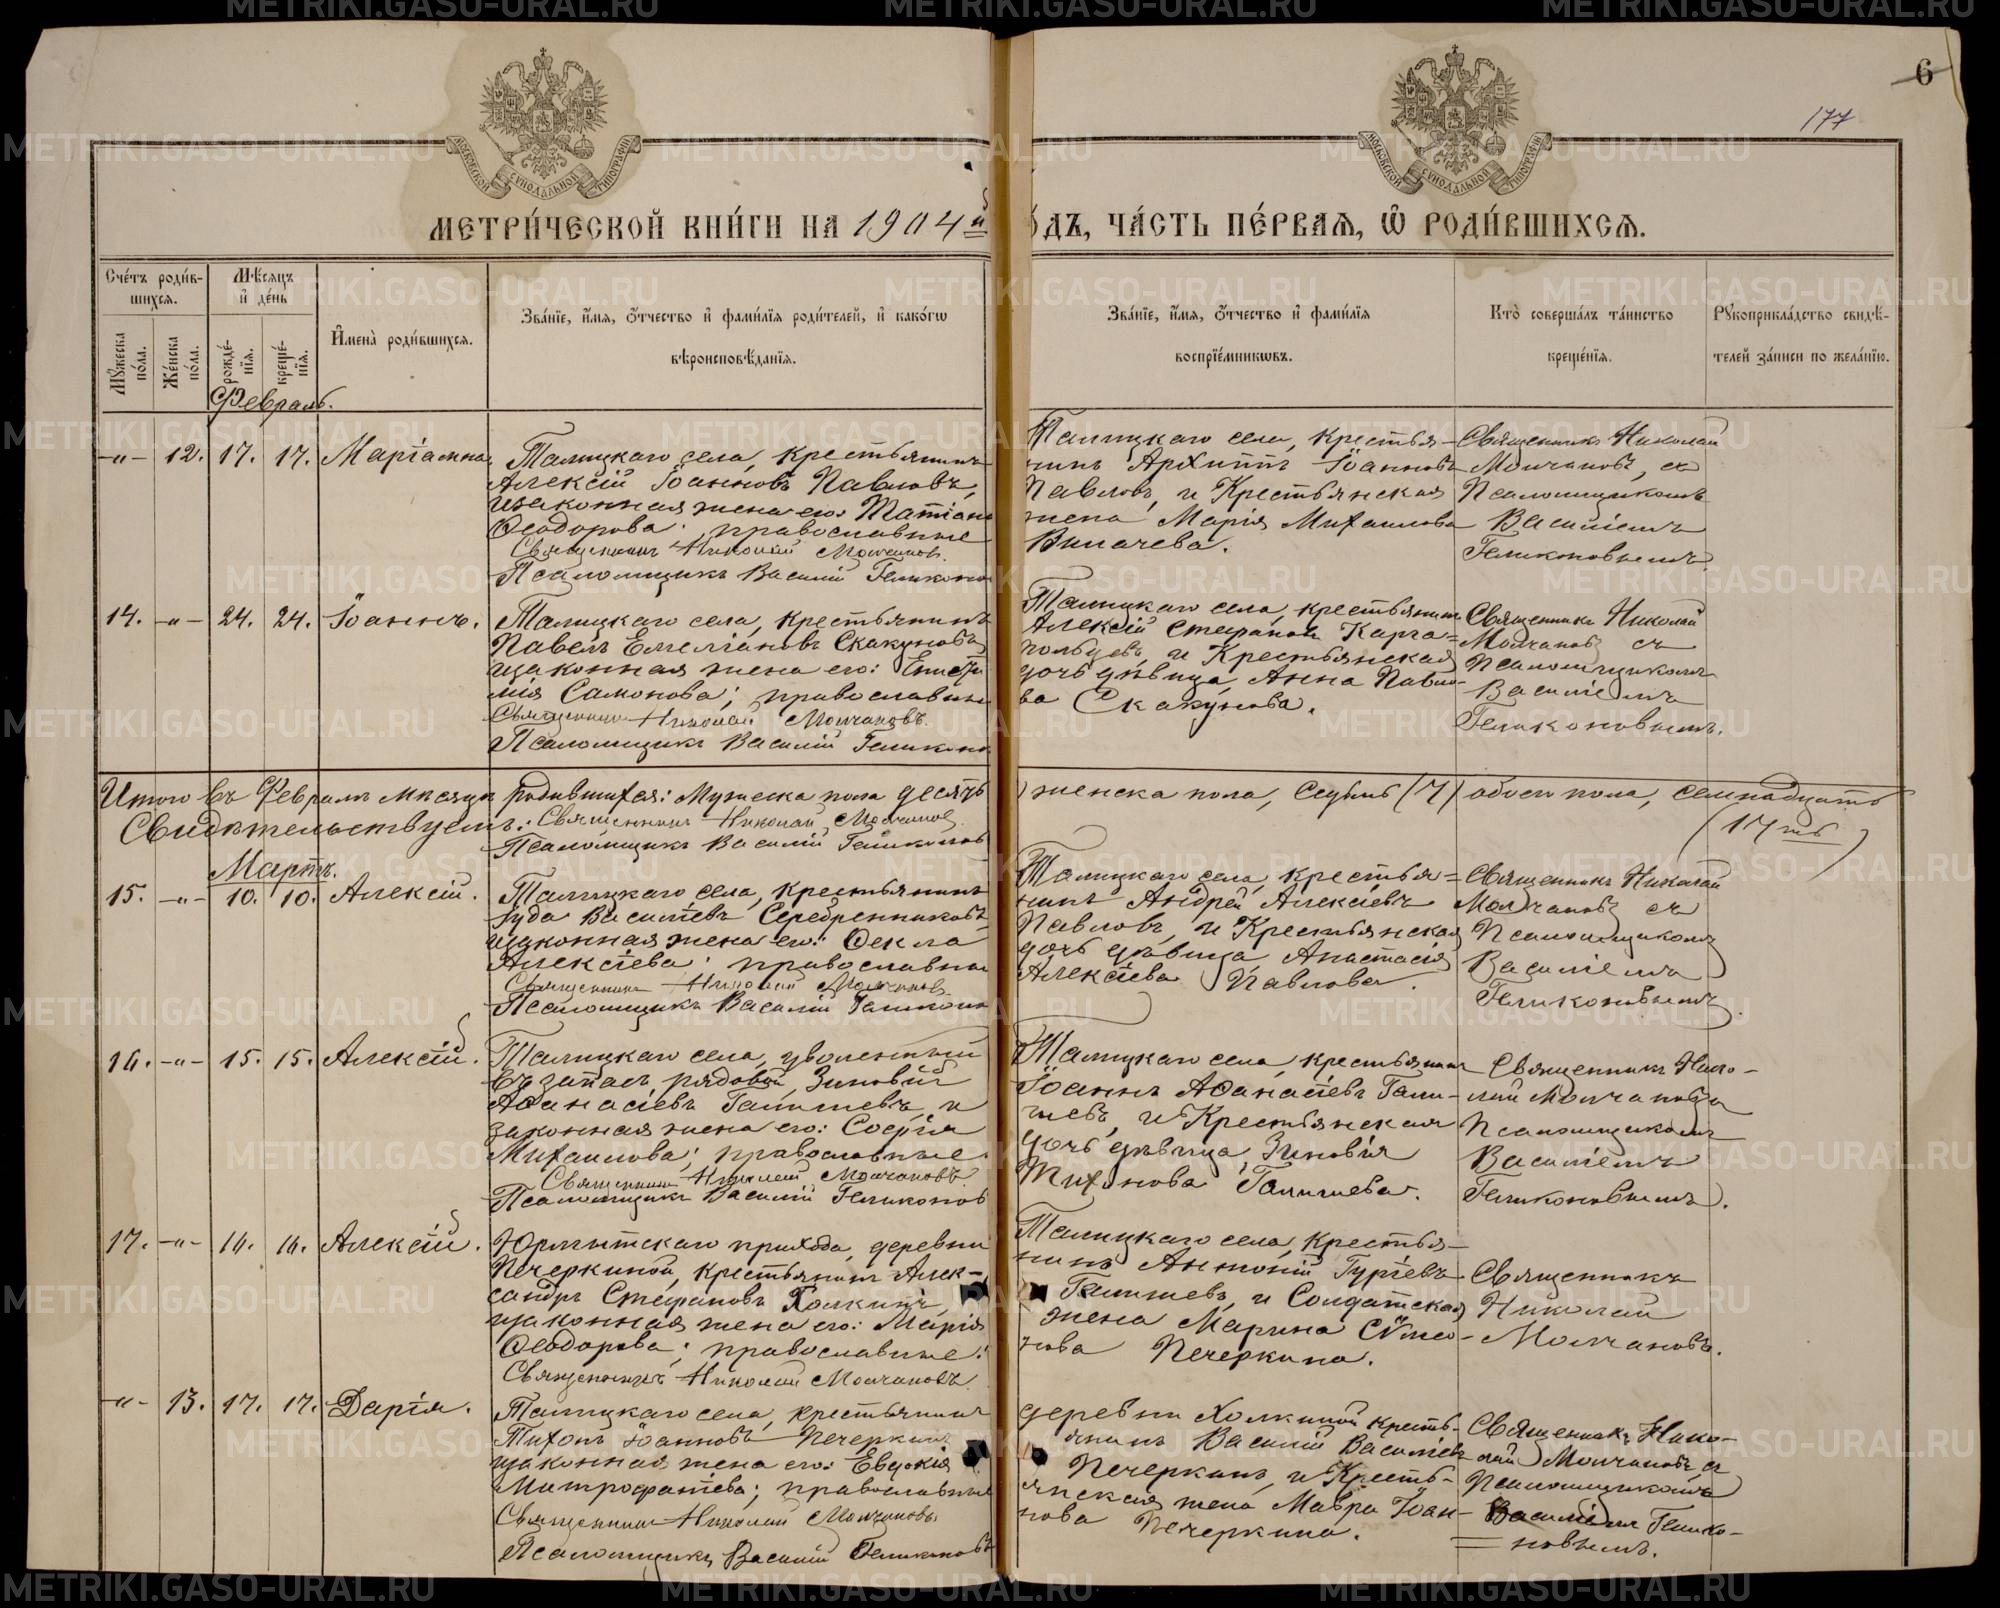 6
177
МОСКОВСКОЙ СѴНОДАЛЬНОЙ ТИПОГРАФІИ
МОСКОВСКОЙ СѴНОДАЛЬНОЙ ТИПОГРАФІИ
МЕТРИ́ЧЕСКОЙ КНИ́ГИ НА 1904й
ОДЪ, ЧА́СТЬ ПЕ́РВАЯ, Ѡ РОДИ́ВШИХСЯ.
Сче́тъ роди́в-
шихся.
Мꙋжеска по́ла.
Же́нска по́ла.
Мѣ́сяцъ
и҆ де́нь
рожде́-
нїя.
креще́-
нїя.
И҆мена̀ роди́вшихся.
Зва́нїе, и҆́мя, ѻ҆́тчество и҆ фами́лїя роди́телей, и҆ како́гѡ
вѣроисповѣ́данїя.
Зва́нїе, и҆́мя, ѻ҆́тчество и҆ фами́лїя
воспрїе́мникѡвъ.
Кто̀ соверша́лъ та́инство
креще́нїя.
Рꙋкоприкла́дство свидѣ́-
телей за́писи по жела́нїю.
Февраль.
-"- 12. 17. 17. Маріамна
Талицкаго села, крестьянинъ
Алексій Іоанновъ Павловъ,
изаконная жена его: Татіана
Ѳеодорова; православные
Священникъ Николай Молчановъ
Псаломщикъ Василій Геликоно
Талицкаго села, крестья-
нинъ Архиппъ Іоанновъ
Павловъ, и Крестьянская
жена Марія Михаилова
Священникъ Николай
Молчановъ, съ
Псаломщикомъ
Василіемъ
Геликоновымъ.
14. -"- 24. 24. Іоаннъ.
Талицкаго села, крестьянинъ
Павелъ Емеліановъ Скакуновъ
изаконная жена его: Еписти
мія Самонова; православны
Священникъ Николай Молчановъ.
Псаломщикъ Василій Геликоно
Талицкаго села, крестьянинъ
Алексій Стефановъ Карга=
польцевъ, и Крестьянская
дочь дѣвица, Анна Павло-
ва Скакунова.
Священникъ Николай
Молчановъ съ
Псаломщикомъ
Василіемъ
Геликоновымъ.
Итого въ Февралѣ мѣсяцѣ родившихся: Мужеска пола десять
) женска пола, Седмь (7) обоего пола, семнадцать
(17ть)
Свидѣтельствуемъ: Священникъ Николай Молчановъ
Псаломщикъ Василій Геликонов
Мартъ.
15. -"- 10. 10. Алексій.
Талицкаго села, крестьянинъ
Іуда Василіевъ Серебренниковъ
изаконная жена его: Ѳекла
Алексіева; православны
Священникъ Николай Молчановъ
Псаломщикъ Василій Геликоно
Талицкаго села, крестья=
нинъ Андрей Алексіевъ
Павловъ, и Крестьянская
дочь дѣвица Анастасія
Алексіева Павлова.
Священникъ Николай
Молчановъ съ
Псаломщикомъ
Василіемъ
Геликоновымъ.
16. -"- 15. 15. Алексій.
Талицкаго села, уволенный
въ запасъ рядовой, Зиновій
Аѳанасіевъ Галишевъ, и
законная жена его: Софія
Михаилова; православные.
Священникъ Николай Молчановъ.
Псаломщикъ Василій Геликонов
Талицкаго села, крестьянинъ
Іоаннъ Аѳанасіевъ Гали-
шевъ, и Крестьянская
дочь дѣвица, Зиновія
Тихонова Галишева.
Священникъ Нико-
лай Молчановъ съ
Псаломщикомъ
Василіемъ
Геликоновымъ.
17. -"- 16. 16. Алексій.
Юрмытскаго прихода, деревни
Печеркиной, крестьянинъ Алек-
сандръ Стефановъ Холкинъ,
изаконная жена его: Марія
Ѳеодорова; православные:
Священникъ Николай Молчановъ
Талицкаго села, Крестья-
нинъ Антоній Гуріевъ
Галишевъ, и Солдатская
жена Марина Сѵмео-
нова Печеркина.
Священникъ
Николай
Молчановъ.
-"- 13. 17. 17. Дарія.
Талицкаго села, крестьянинъ
Тихонъ Іоанновъ Печеркинъ
изаконная жена его: Евдокія
Митрофанова; православны
Священникъ Николай Молчановъ
Псаломщикъ Василій Геликоновъ
деревни Холкиной кресть-
янинъ Василій Василіевъ
Печеркинъ, и Кресть-
янская жена Мавра Іоан-
нова Печеркина.
Священникъ Нико-
лай Молчановъ съ
Псаломщикомъ
Василіемъ Гелико-
новымъ.
METRIKI.GASO-URAL.RU